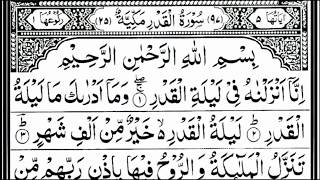 اٰيَاتُهَا ٥ (٩٧) سُوْرَةُ الْقَدْرِ مَكِّيَّةٌ (٢٥) رُكُوْعُهَا ١
بِسْمِ اللّٰهِ الرَّحْمٰنِ الرَّحِيْمِ
اِنَّاۤ اَنْزَلْنٰهُ فِىْ لَيْلَةِ الْقَدْرِ ۚۖ ﴿١﴾ وَمَاۤ اَدْرٰٮكَ مَا لَيْلَةُ
الْقَدْرِؕ ﴿٢﴾ لَيْلَةُ الْقَدْرِ ۙ خَيْرٌ مِّنْ اَلْفِ شَهْرٍؕ ﴿٣﴾
تَنَزَّلُ الْمَلٰٓٮِٕكَةُ وَالرُّوْحُ فِيْهَا بِاِذْنِ رَبِّهِمْ مِّنْ